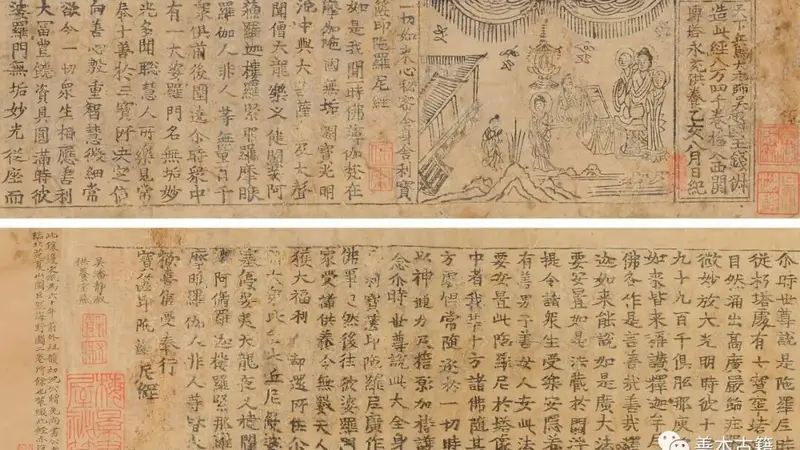 天下兵馬大元帥吳越國王錢俶
造此經八万四千卷捨入西關
塼塔永充供養乙亥八月日紀
一切如來心秘密全身舍利寶
篋印陁羅尼經
如是我聞時佛薄伽梵在
摩伽陁國無垢園寶光明
池中與大菩薩及大聲
聞僧天龍藥叉健闥婆阿
蘓羅迦樓羅緊那羅摩睺
羅伽人非人等無量百千
衆俱前後圍遶尒時衆中
有一大婆羅門名無垢妙
光多聞聡慧人所樂見常
奉十善於三寶所決定信
向善心殷重智慧微細常
欲令一切衆生相應善利
大冨豊饒資具圓滿時彼
婆羅門無垢妙光從座而
尒時世尊說是陁羅尼時
從朽塔處有七寶窣堵
自然涌出高廣嚴飾莊
微妙放大光明時彼十
九十九百千俱胝那庾
如來皆來稱讚釋迦牟尼
佛各作是言善哉善哉釋
迦如來能說如是廣大法
要安置如是法藏於閻
提令諸衆生受樂安隱
有善男子善女人安此法
要安置此陁羅尼於塔像
中者我等十方諸佛隨其
方處恒常隨逐於一切時
以神通力及誓願加持護
念尒時世尊說此大全身
利寶篋印陁羅尼廣作
佛事已然後往彼婆羅門
家受諸供養令無數天人
獲大福利却還所住
大衆比丘尼優婆
塞優婆夷天龍夜叉健闥
阿脩羅迦樓羅緊那羅
摩睺羅伽人非人等皆大
歡喜信受奉行
寶篋印陁羅尼經
吳潘靜淑
供養
善本古籍